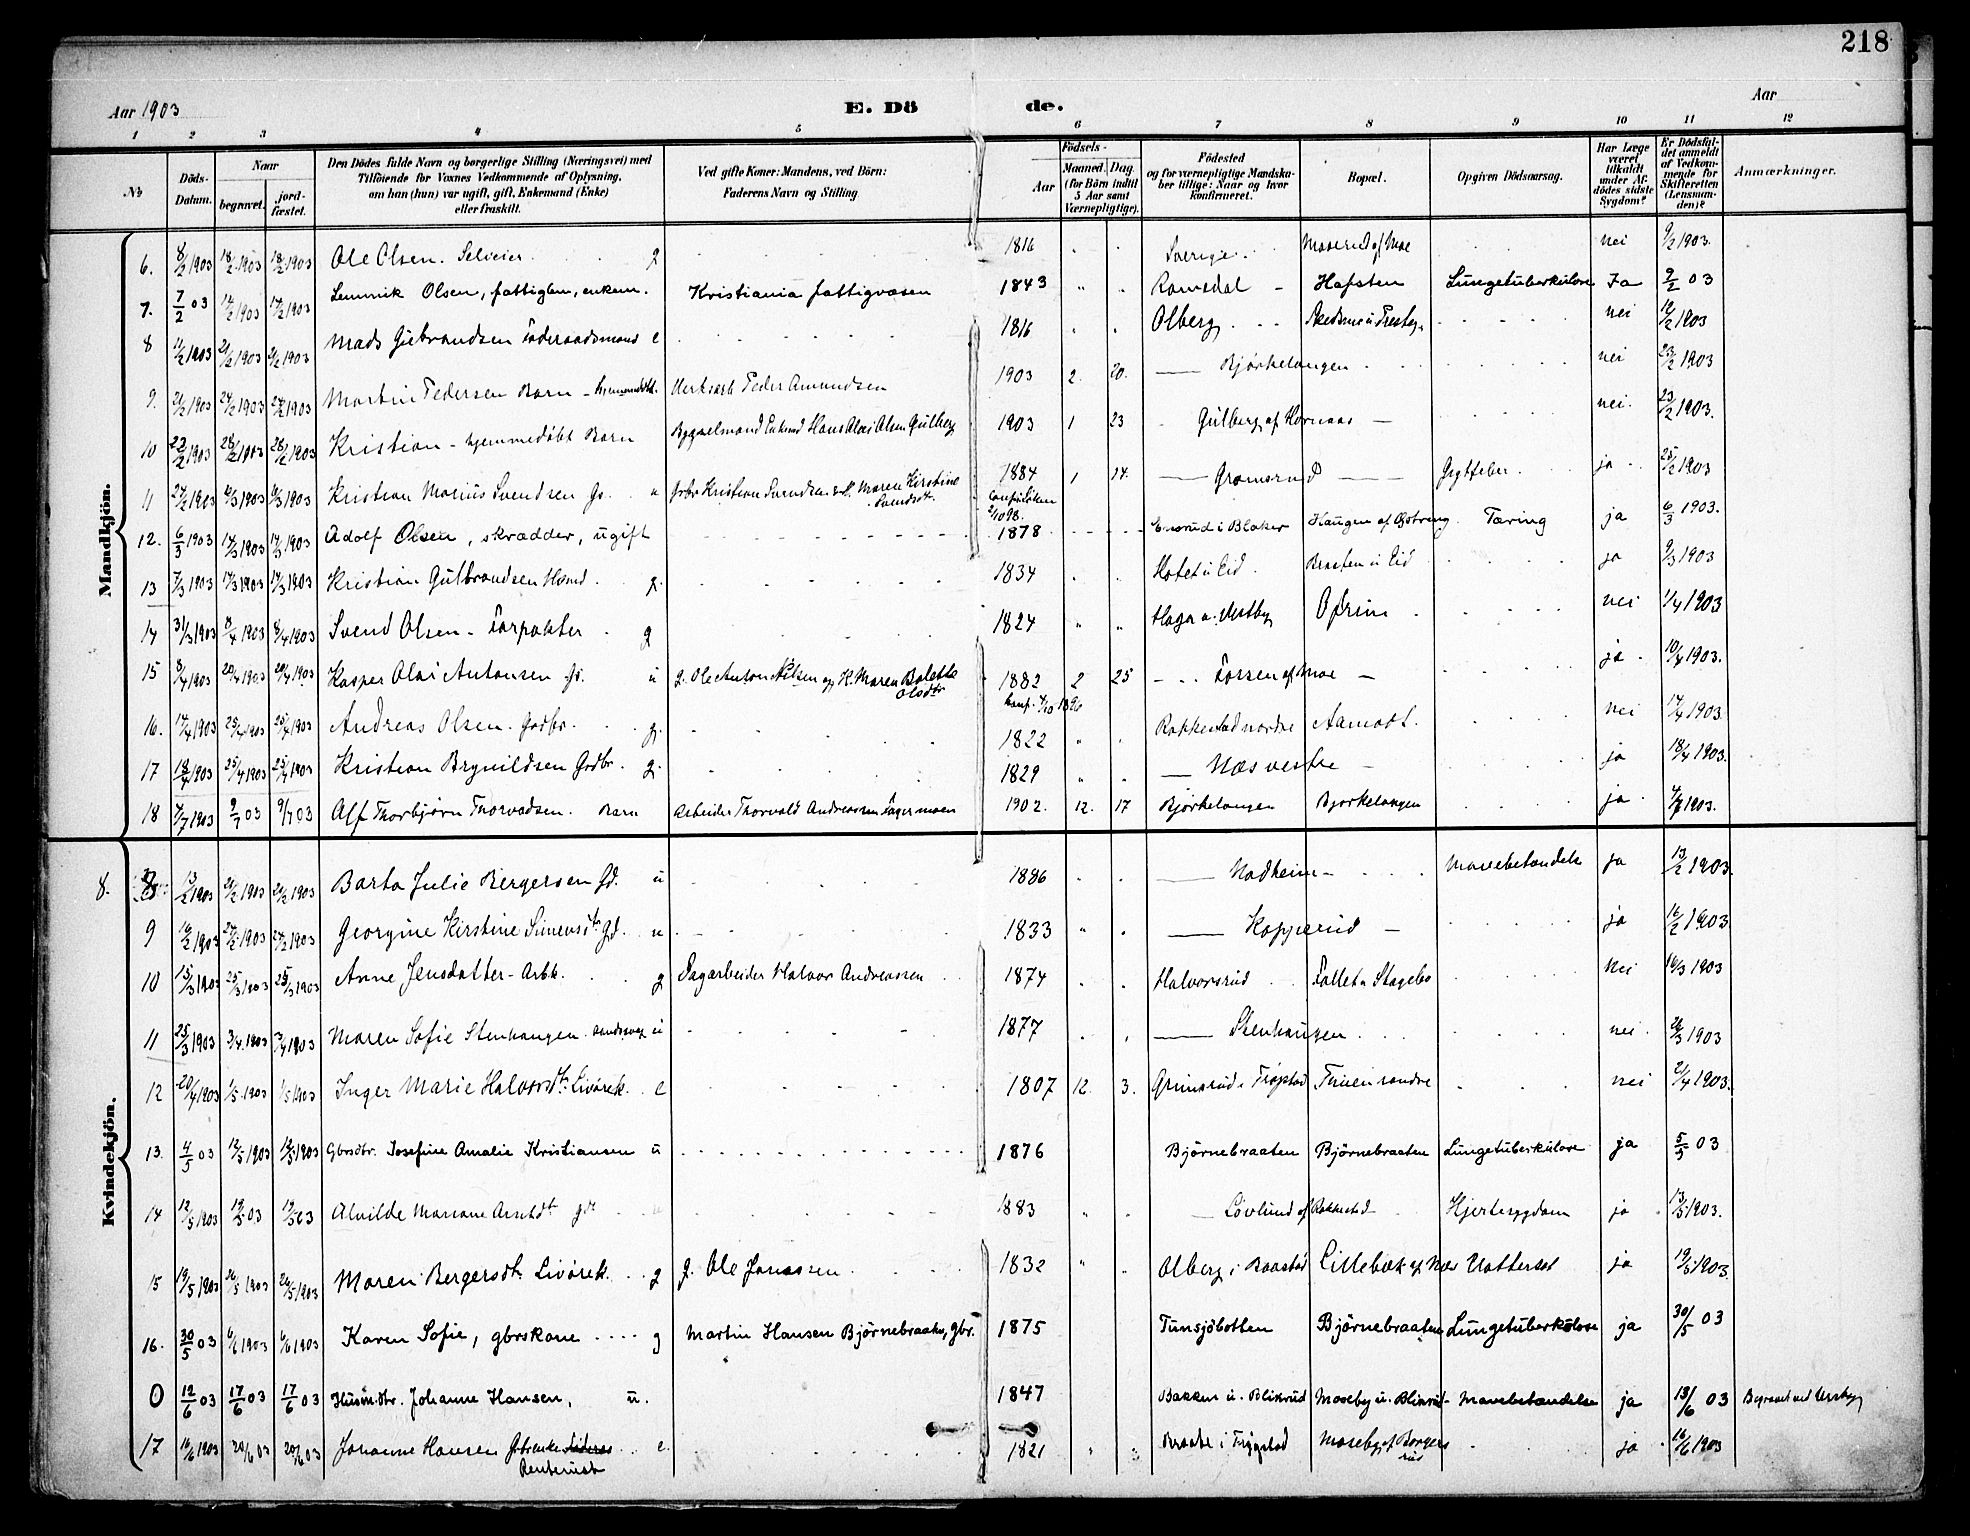 218
Aar 1903 E. Dö de. Aar
1 2 3 4 5 6 7 8 9 10 11 12
№ Döds-Datum. Naar begravet. jord-fæstet. Den Dödes fulde Navn og borgerlige Stilling (Næringsvei) med Tilföiende for Voxnes Vedkommende af Oplysning, om han (hun) var ugift, gift, Enkemand (Enke) eller fraskilt. Ved gifte Koner: Mandens, ved Börn: Faderens Navn og Stilling. Födsels- Aar Maaned. Dag. (for Börn indtil 5 Aar samt Værnepligtige). Födested og for værnepligtige Mandskaber tillige: Naar og hvor konfirmeret. Bopæl. Opgiven Dödsaarsag. Har Læge været tilkaldt under Afdödes sidste Sygdom? Er Dödsfaldet anmeldt af Vedkommende for Skifteretten (Lensmanden)? Anmærkninger.
Mandkjön.
6. 8/2 1903 18/2 1903 18/2 1903 Ole Olsen. Selveier g 1816 Sverige Moserud af Moe nei 9/2 1903.
7. 7/2 03 17/2 1903 17/2 1903 Olsen, fattiglem, enkem. Kristiania fattigvæsen 1843 Romsdal Hafsten Lungetuberkulose Ja 9/2 03
8 11/2 1903 21/2 1903 21/2 1903 Mads Gulbrandsen Föderaadsmand e 1816 Olberg nei 12/2 1903
9. 21/2 1903 24/2 1903 24/2 1903 Martin Pedersen Barn - hjemmedøbt. Peder Amundsen 1903 2. 20. Bjørkelangen nei 23/2 1903
10 22/2 1903 28/2 1903 28/2 1903 Kristian - hjemmedøbt Barn Bygselmand Enkem Hans Olai Olsen Gulberg 1903 1 23 Gulberg af Hornaas nei. 23/2 1903.
11 24/2 1903 6/3 1903 6/3 1903 Kristian Marius Svendsen Gs. u Grbr Kristian Svendsen & H. Maren Kirstine Svendsdt. 1884 1 14. Gromsrud Gigtfeber ja 25/2 1903
2/10 98.
12. 6/3 1903 14/3 1903 14/3 1903 Adolf Olsen, skrædder, ugift 1878 Ensrud i Blaker Haugen af Østreng Tæring ja 6/3 1903.
13 7/3 1903 17/3 1903 17/3 1903 Kristian Gulbrandsen Husmd. g. 1834 Hotet i Eid Braaten i Eid ja 9/3 1903
14 31/3 1903 8/4 1903 8/4 1903 Svend Olsen - Forpakter g 1824 Haga u. Vestby Ofrim nei 1/4 1903
15 8/4 1903 20/4 1903 20/4 1903 Kasper Olai Antonsen Gs. u g. Ole Anton Nilsen og H. Maren Bolette Olsdtr 1882 2 25 Fossen af Moe ja 10/4 1903.
Konf. 4/10 1896
16. 14/4 1903 25/4 1903 25/4 1903 Andreas Olsen. Grdbr. g. 1822 Rakkestad nordre Aamodt. nei 17/4 1903
17 18/4 1903 25/4 1903 25/4 1903 Kristian Brynildsen Grdbr. g. 1829 Næs vestre ja 18/4 1903.
18 7/7 1903 9/7 03 9/7 03 Alf Thorbjørn Thorvadsen. Barn Arbeider Thorvald Andreassen Fagermoen 1902. 12. 17 Bjørkelangen Bjørkelangen ja 7/7 1903.
Kvindekjön.
8. 13/2 1903 21/2 1903 21/2 1903 Barta Julie Bergersen Gd. u 1886 Nadheim Mavebetændelse ja 13/2 1903.
9 16/2 1903 24/2 1903 24/2 1903 Georgine Kirstine Simensdtr Gd. u 1833 Kopperud ja 16/2 1903
10 15/3 1903 25/3 1903 25/3 1903 Anne Jensdatter - Arbk. g Dagarbeider Halvor Andreassen 1874 Halvorsrud Fallet u Stagebo nei 16/3 1903
11 25/3 1903 3/4 1903 3/4 1903 Maren Sofie Stenhaugen u 1877 Stenhaugen nei 26/3 1903
12 20/4 1903 1/5 1903 1/5 1903 Inger Marie Halvorsdt. Livörek. e 1807 12. 3. Grimsrud i Trøgstad Tunen søndre nei 21/4 1903.
13. 4/5 03 12/5 1903 12/5 1903 Gbrsdtr. Josefine Amalie Kristiansen u 1876 Bjørnebraaten Bjørnebraaten Lungetuberkulose ja 5/5 03
14 12/5 1903 19/5 03 19/5 03 Alvilde Mariane Arntsdt gd. u 1883 Lövlund af Rakkestad Hjertesygdom ja 13/5 1903.
15 19/5 1903 26/5 1903 26/5 1903 Maren Bergersdt. Livörek. g g. Ole Jonassen 1832 Olberg i Baastad Lillebæk af Næs Vattersot ja 19/5 1903.
16. 30/5 03 6/6 1903 6/6 1903 Karen Sofie, gbrskone g Martin Hansen Bjørnebraaten, gbr. 1875 Tunsjøbotten Bjørnebraaten Lungetuberkulose ja 30/5 03
0 12/6 03 17/6 03 17/6 03 Husmdtr. Johanne Hansen, u. 1847 Bakken u. Blixrud Moseby u. Blixrud Mavebetændelse ja 13/6 03 Begravet ved Urskog
17 16/6 1903 20/6 03 20/6 03 Johanne Hansen Gbrenke e. 1821 Braate i Trøgstad Moseby af Borgersrud ja 16/6 1903
Rentenist